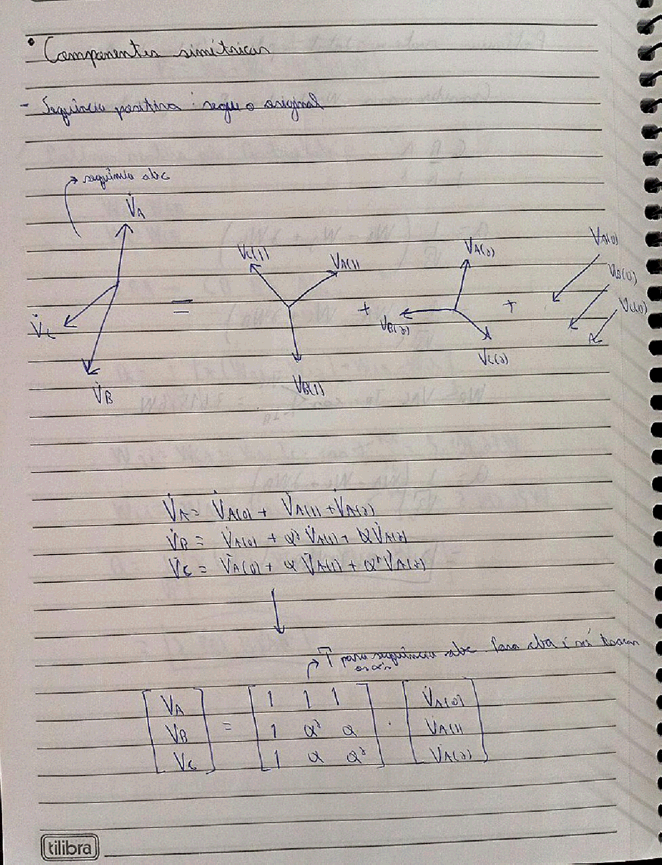 • Componentes simétricas
- Sequência positiva: segue o original
→ sequência abc
V̇A
V̇C
V̇B
=
VC(1)
VA(1)
VB(1)
+
VA(2)
VB(2)
VC(2)
+
VA(0)
VB(0)
VC(0)
V̇A = V̇A(0) + V̇A(1) + V̇A(2)
V̇B = V̇A(0) + α² V̇A(1) + α V̇A(2)
V̇C = V̇A(0) + α V̇A(1) + α² V̇A(2)
T para sequência abc Para cba é só trocar
V̇A = 1 1 1 · V̇A(0)
V̇B 1 α² α V̇A(1)
V̇C 1 α α² V̇A(2)
tilibra